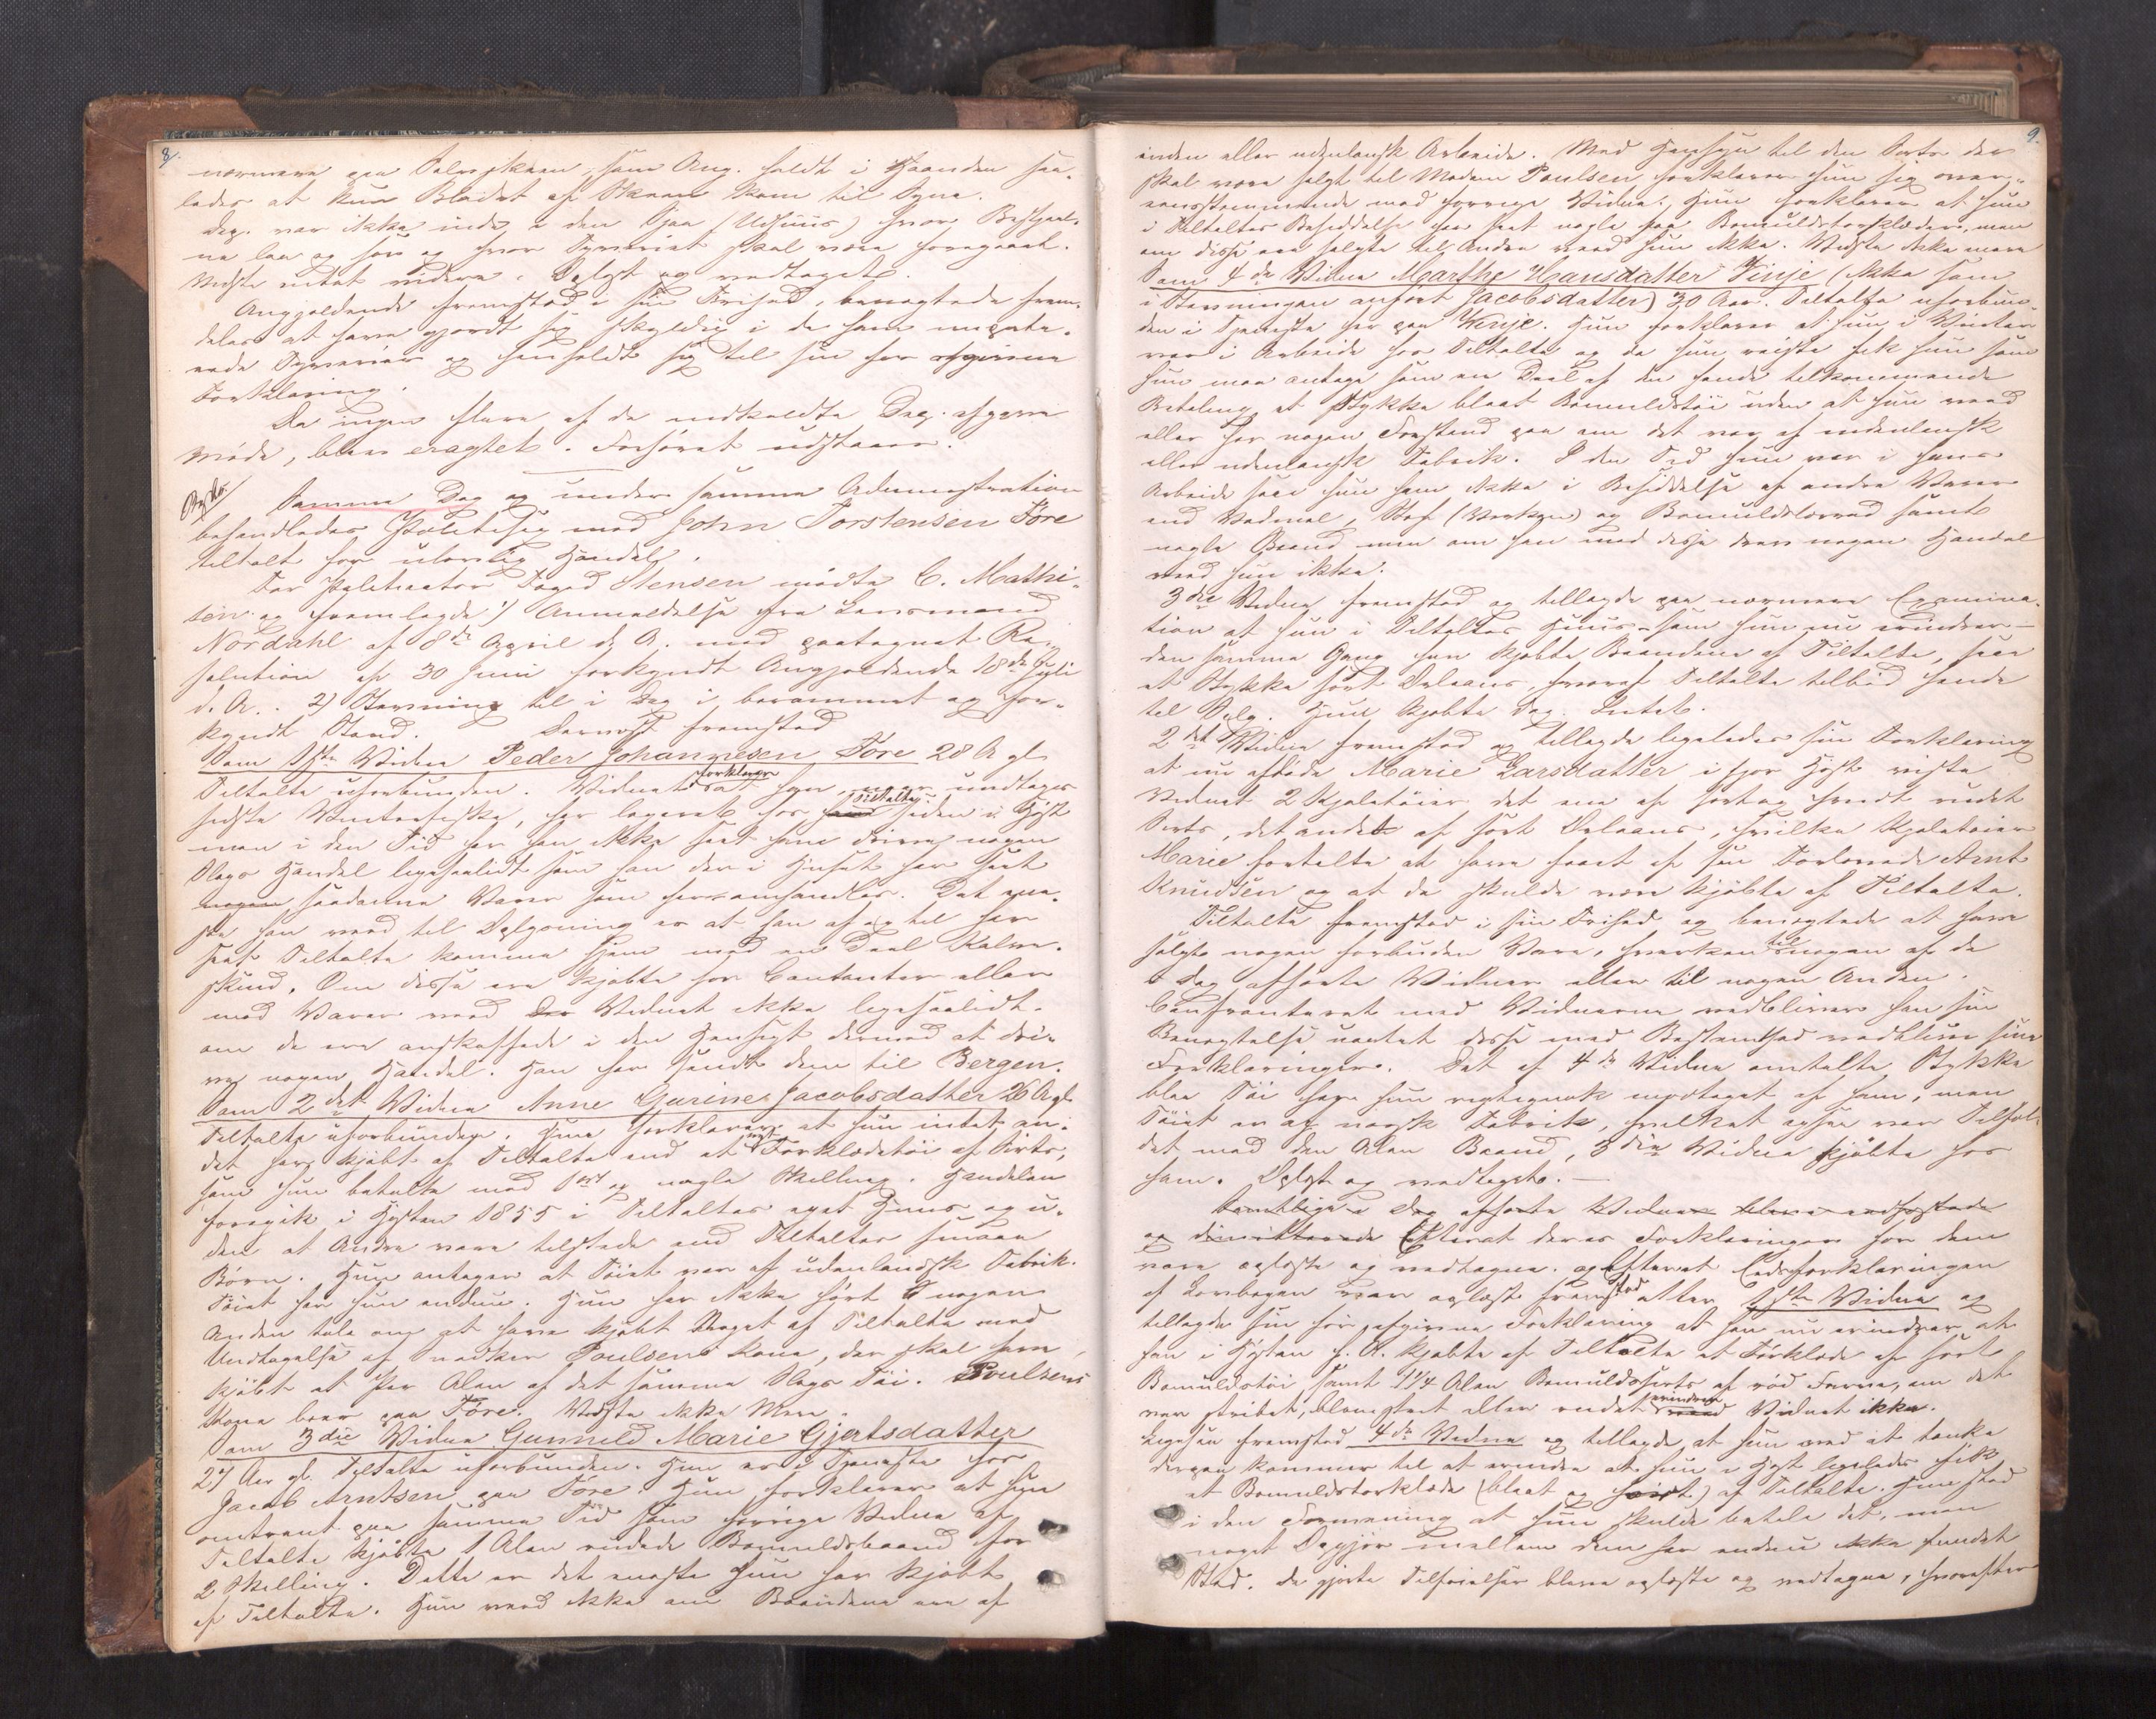 8.
nærmere paa Tolvskken, som Ang. holdt i Haanden saa-
ledes at kun Bladet af Skeen kom til Syne.
Dep. var ikke inde i den Sjaa (Udhuus) hvor Bestjaal-
ne laa og sov og hvor Tyveriet skal være foregaaet.
Vidste intet videre. Oplæst og vedtaget.
Angjældende fremstod i sin Frihed, benegtede frem-
deles at have gjordt sig skyldig i de ham imputte-
rede Tyverier og henholdt sig til sin før afgivne
Forklaring.
Da ingen flere af de indkaldte Dep. afgave
Møde, blev eragtet. Forhøret udstaaer.
Samme Dag og under samme Administration
behandledes Politisag mod John Torstensen Føre
tiltalt for ulovlig Handel.
For Politiactor Foged Stensen mødte C. Mathi-
sen og fremlagde 1) Anmeldelse fra Lensmand
Nordahl af 8de April d. A. med paategnet Re-
solution af 30 Juni forkyndt Angjældende 18de Juli
d. A. . 2) Stævning til i Dag i berammet og for-
kyndt Stand. Dernæst fremstod
Som 1ste Vidne Peder Johannesen Føre 28 A gl
Tiltalte uforbunden. Vidnet forklarer at han, naar undtages
sidste Vinterfiske, har logeret hos Tiltalte siden i Høst
men i den Tid har han ikke seet ham drive nogen
Slags Handel ligesaalidt som han der i Huset har seet
nogen saadanne Varer som her omhandles. Det ene-
ste han veed til Oplysning er at han af og til har
seet Tiltalte komme hjem med en Deel Kalve-
skind. Om disse ere kjøbte for Contanter eller
mod Varer veed Vidnet ikke ligesaalidt
om de ere anskaffede i den Hensigt dermed at dri-
ve nogen Handel. Han har sendt dem til Bergen.
Som 2det Vidne Anne Gurine Jacobsdatter 26 A gl.
Tiltalte uforbunden. Hun forklarer at hun intet an-
det har kjøbt af Tiltalte end et nyt Forklædetøi af Sirts,
som hun betalte med 1 ort og nogle Skilling. Handelen
foregik i Høsten 1855 i Tiltaltes eget Huus og u-
den at Andre vare tilstede end Tiltaltes smaa
Børn. Hun antager at Tøiet var af udenlandsk Fabrik.
Tøiet har hun endnu. Hun har ikke hørt nogen
Anden tale om at have kjøbt Noget af Tiltalte med
Undtagelse af Poulsens Kone, der skal have
kjøbt et Par Alen af det samme Slags Tøi. Poulsens
Kone boer paa Føre. Vidste ikke Mere.
Som 3die Vidne Gunnild Marie Gjertsdatter
27 Aar gl. Tiltalte uforbunden. Hun er i Tjeneste hos
Jacob Arntsen paa Føre. Hun forklarer at hun
omtrent paa samme Tid som forrige Vidne af
Tiltalte kjøbte 1 Alen rudede Bomuldsbaand for
2 Skilling. Dette er det eneste hun har kjøbt
af Tiltalte. Hun veed ikke om Baandene ere af
9.
inden eller udenlansk Arbeide. Med Hensyn til den Sirts der
skal være solgt til Madam Poulsen forklarer hun sig over-
eensstemmende med forrige Vidne. Hun forklarer at hun
i Tiltaltes Besiddelse har seet nogle faa Bomuldstørklæder, men
om disse ere solgte til Andre veed hun ikke. Vidste ikke mere
Som 4de Vidne Marthe Hansdatter Vinje (ikke som
i Stævningen anført Jacobsdatter) 30 Aar. Tiltalte uforbun-
den i Tjeneste her paa Vinje. Hun forklarer at hun i Vinter
var i Arbeide hos Tiltalte og da hun reiste fik hun som
hun maa antage som en Deel af den hende tilkommende
Betaling et Stykke blaat Bomuldstøi uden at hun veed
eller har nogen Forstand paa om det var af indenlansk
eller udenlansk Fabrik. I den Tid hun var i hans
Arbeide saae hun ham ikke i Besiddelse af andre Varer
end Vadmel, Stof (Værken) og Bomuldslærred samt
nogle Baand men om han med disse drev nogen Handel
veed hun ikke.
3die Vidne fremstod og tillagde paa nærmere Examina-
tion at hun i Tiltaltes Huus – som hun nu erindrer –
den samme Gang hun kjøbte Baandene af Tiltalte, saae
et Stykke sort Orleans, hvoraf Tiltalte tilbød hende
til Salg. Hun kjøbte dog Intet.
2det Vidne fremstod og tillagde ligeledes sin Forklaring
at nu afdøde Marie Larsdatter i fjor Høst viste
Vidnet 2 Kjoletøier det ene af sort og hvidt rudet
Sirts, det andet af sort Orleans, hvilke Kjoletøier
Marie fortalte at have faaet af sin Forlovede Arnt
Knudsen og at de skulde være kjøbte af Tiltalte.
Tiltalte fremstod i sin Frihed og benegtede at have
solgt nogen forbuden Vare, hverken til nogen af de
i Dag afhørte Vidner eller til nogen Anden.
Confronteret med Vidnerne vedbliver han sin
Benegtelse uagtet disse med Bestemthed vedblive sine
Forklaringer. Det af 4de Vidne omtalte Stykke
blaa Tøi har hun rigtignok modtaget af ham, men
Tøiet er af norsk Fabrik, hvilket ogsaa var Tilfæl-
det med den Alen Baand, 3die Vidne kjøbte hos
ham. Oplæst og vedtaget. –
Samtlige i Dag afhørte Vidner bleve
og dimitterede Efterat deres Forklaringer for dem
vare oplæste og vedtagne. og Efterat Eedsforklaringen
af Lovbogen var oplæst fremstod atter 1ste Vidne og
tillagde sin før afgivne Forklaring at han nu erindrer at
han i Høsten f. A. kjøbte af Tiltalte et Tørklæde af sort
Bomuldstøi samt 1 1/4 Alen Bomuldssirts af rød Farve, om det
var stribet, blomstret eller rudet erindrer Vidnet ikke.
Ligesaa fremstod 4de Vidne og tillagde at hun ved at tænke
derpaa kommer til at erindre at hun i Høst ligeledes fik
et Bomuldstørklæde (blaat og hvidt) af Tiltalte. Hun stod
i den Formening at hun skulde betale det, men
noget Opgjør mellem dem har endnu ikke fundet
Sted. De gjorte Tilføielser bleve oplæste og vedtagne, hvorefter